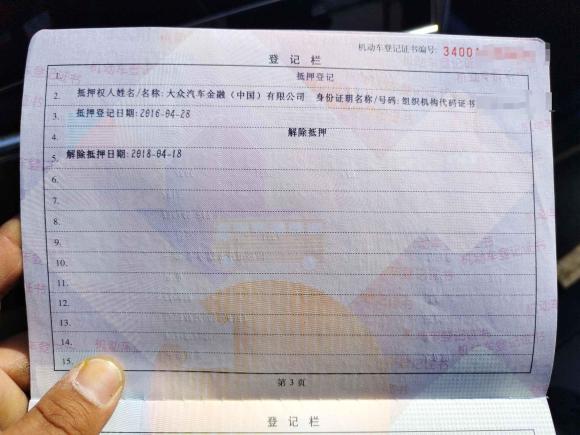 机动车登记证书编号: 34001
登记栏
1. 抵押登记
2. 抵押权人姓名/名称: 大众汽车金融（中国）有限公司 身份证明名称/号码: 组织机构代码证书
3. 抵押登记日期: 2016-04-28
4. 解除抵押
5. 解除抵押日期: 2018-04-18
6.
7.
8.
9.
10.
11.
12.
13.
14.
15.
第3页
登记栏